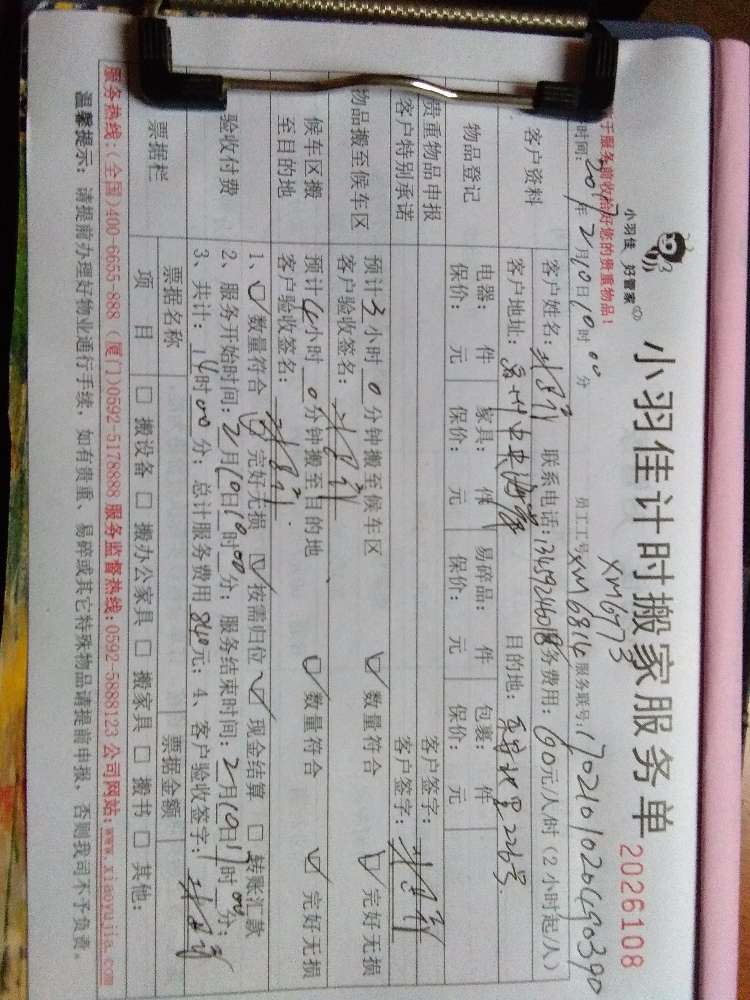 小羽佳 好管家
小羽佳计时搬家服务单
2026108
于服务前收拾好您的贵重物品!
XM6773
时间: 2017年2月10日10时00分 员工工号XM6814 服务联号:
客户资料 客户姓名: 联系电话: 务费用: 60元/人/时 (2小时起/人)
客户地址: 目的地:
物品登记 电器: 件 家具: 件 易碎品: 件 包裹: 件
保价: 元 保价: 元 保价: 元 保价: 元
贵重物品申报 客户签字:
客户特别承诺 客户签字:
物品搬至候车区 预计3小时0分钟搬至候车区 ☑ 数量符合 ☑ 完好无损
客户验收签名:
候车区搬至目的地 预计4小时0分钟搬至目的地 ☑ 数量符合 ☑ 完好无损
客户验收签名:
验收付费 1、☑ 数量符合 ☑ 完好无损 ☑ 按需归位 ☑ 现金结算 □ 转账汇款
2、服务开始时间: 2月10日10时00分; 服务结束时间: 2月10日17时00分;
3、共计: 14时00分; 总计服务费用840元; 4、客户验收签字:
票据栏 票据名称 票据金额
项 目 □ 搬设备 □ 搬办公家具 □ 搬家具 □ 搬书 □ 其他:
服务热线: (全国)400-6655-888 (厦门)0592-5178888 服务监督热线: 0592-5888123 公司网站: www.xiaoyujia.com
温馨提示: 请提前办理好物业通行手续, 如有贵重、易碎或其它特殊物品请提前申报, 否则我司不予负责。